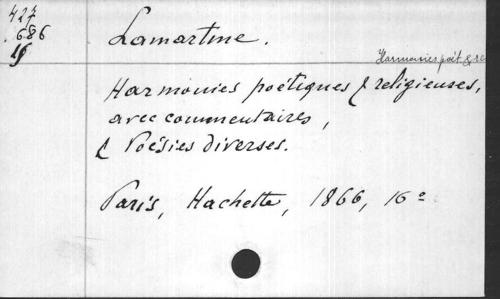 427
686
Lamartine.
Harmonies poét. & re
Harmonies poétiques & religieuses,
avec commentaires,
& Poésies diverses.
Paris, Hachette, 1866, 16°